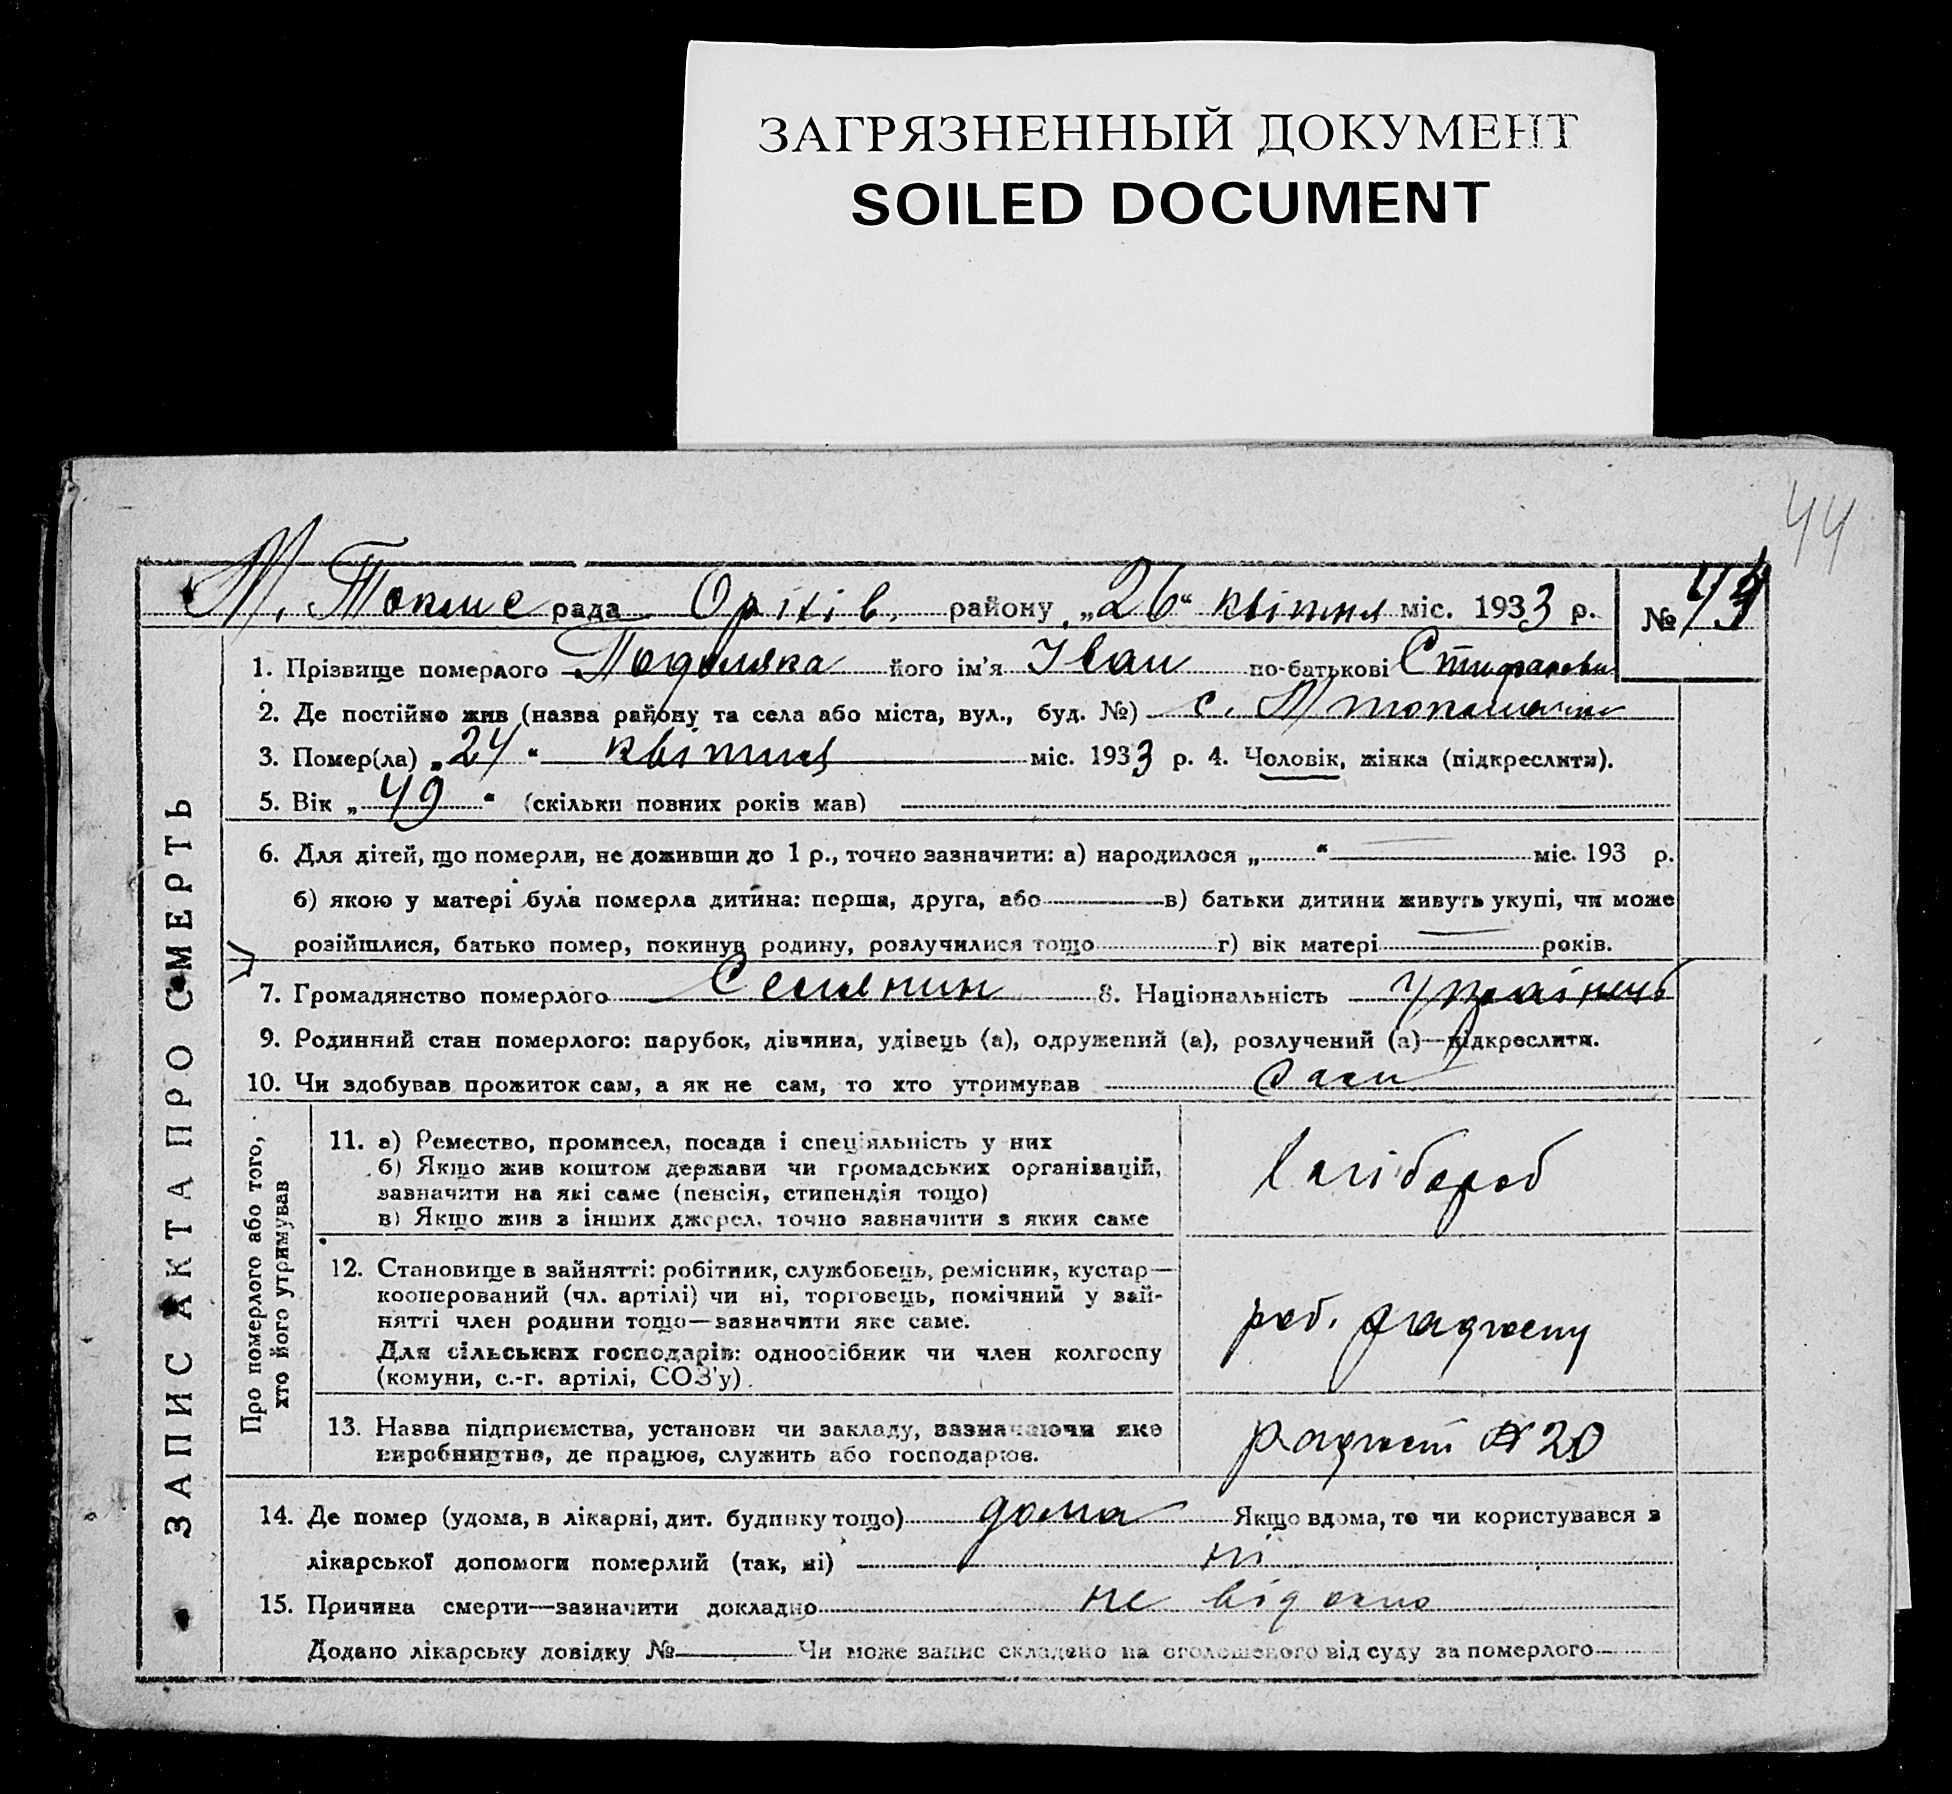 ЗАГРЯЗНЕННЫЙ ДОКУМЕНТ
SOILED DOCUMENT
44
М. Токмс рада Оріхів. району „26“ квітня міс. 1933 р. №
1. Прізвище померлого Подоляка його ім'я Іван по-батькові
2. Де постійно жив (назва району та села або міста, вул., буд. №) с. М
3. Помер(ла) „24“ квітня міс. 1933 р. 4. Чоловік, жінка (підкреслити).
5. Вік „49“ (скільки повних років мав)
6. Для дітей, що померли, не доживши до 1 р., точно зазначити: а) народилося „ “ міс. 193 р.
б) якою у матері була померла дитина: перша, друга, або в) батьки дитини живуть укупі, чи може
розійшлися, батько помер, покинув родину, розлучилися тощо г) вік матері років.
7. Громадянство померлого Селянин 8. Національність Українець
9. Родинний стан померлого: парубок, дівчина, удівець (а), одружений (а), розлучений (а)—підкреслити.
10. Чи здобував прожиток сам, а як не сам, то хто утримував сам
ЗАПИС АКТА ПРО СМЕРТЬ
Про померлого або того,
хто його утримував
11. а) Ремество, промисел, посада і спеціяльність у них
б) Якщо жив коштом держави чи громадських організацій,
зазначити на які саме (пенсія, стипендія тощо)
в) Якщо жив з інших джерел, точно зазначити з яких саме
хлібороб
12. Становище в зайнятті: робітник, службовець, ремісник, кустар—
кооперований (чл. артілі) чи ні, торговець, помічний у зай-
нятті член родини тощо—зазначити яке саме.
Для сільських господарів: одноосібник чи член колгоспу
(комуни, с.-г. артілі, СОЗ'у).
роб. радгоспу
13. Назва підприємства, установи чи закладу, зазначаючи яке
виробництво, де працює, служить або господарює.
радгосп № 20
14. Де помер (удома, в лікарні, дит. будинку тощо) дома Якщо вдома, то чи користувався з
лікарської допомоги померлий (так, ні) ні
15. Причина смерти—зазначити докладно не відомо
Додано лікарську довідку № Чи може запис складено на оголошеного від суду за померлого